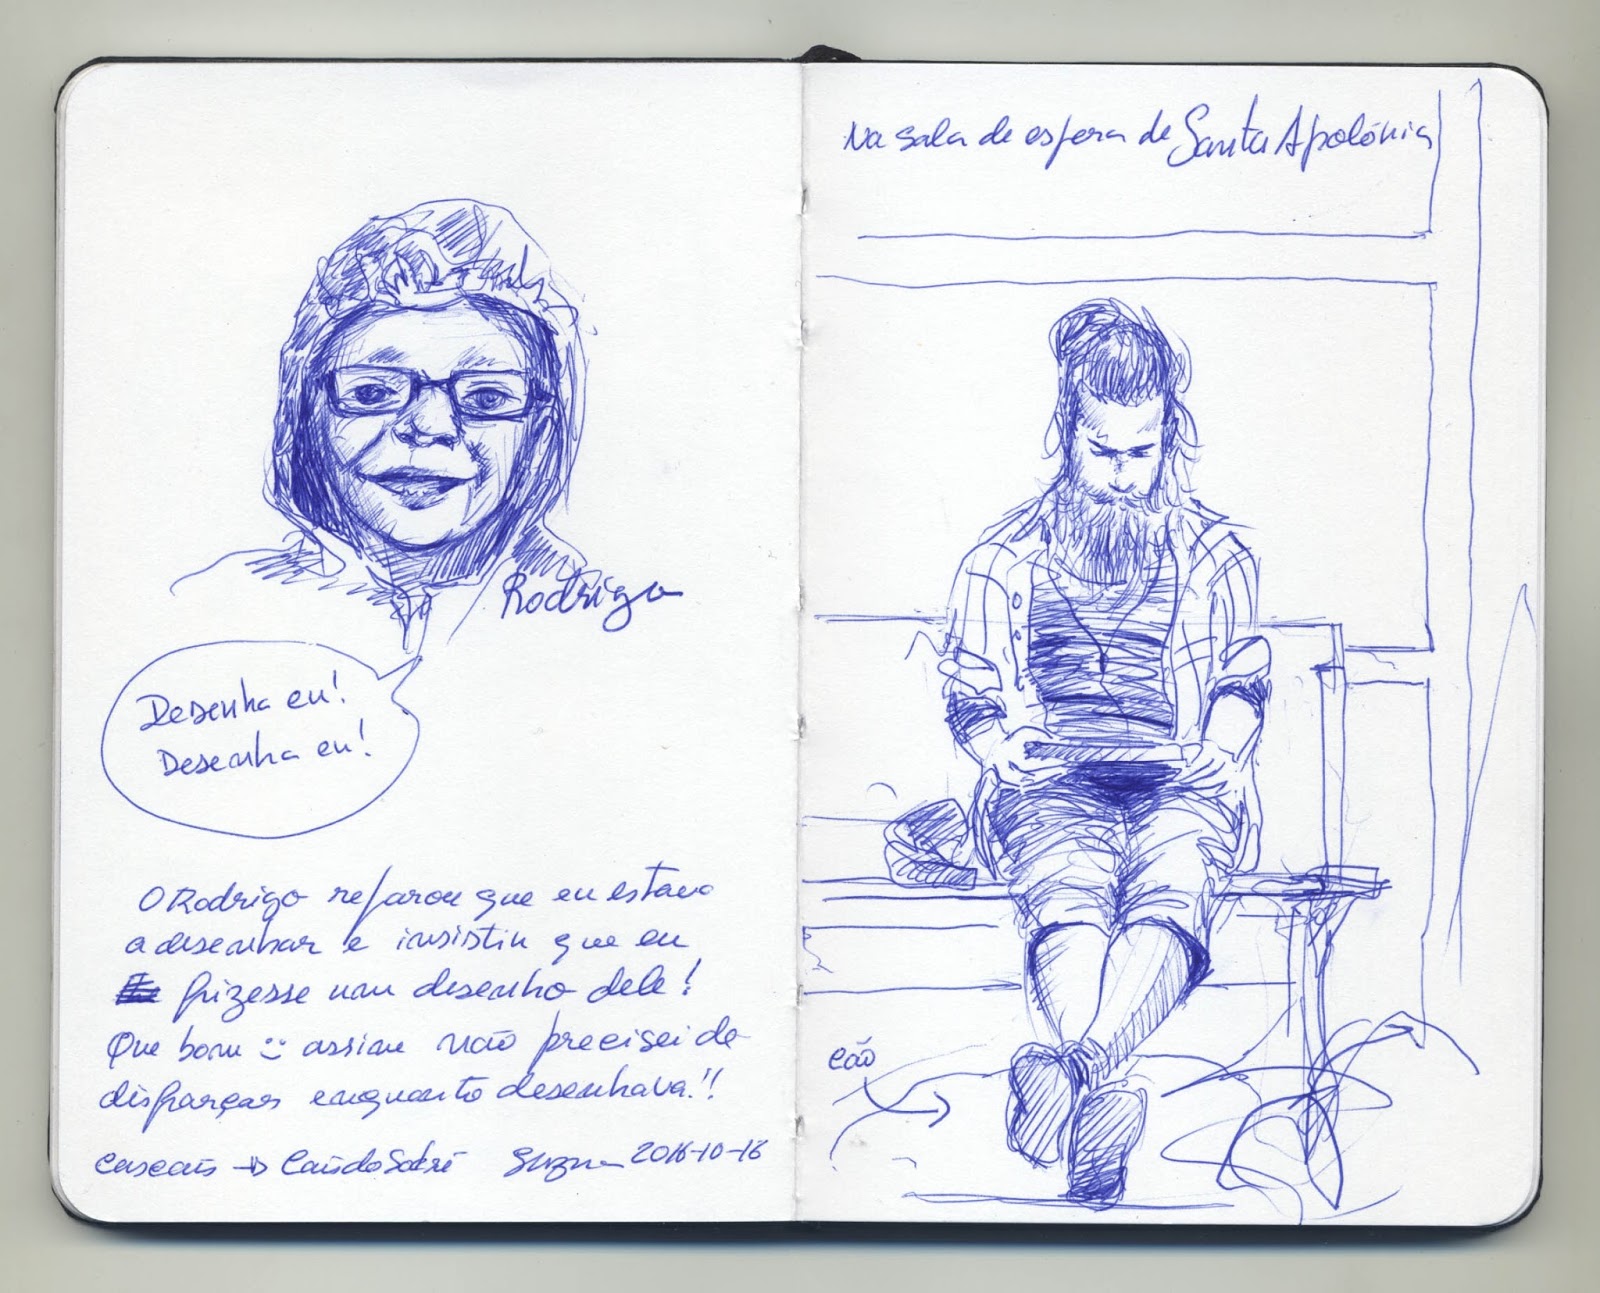 Rodrigo
Desenha eu!
Desenha eu!
O Rodrigo reparou que eu estava
a desenhar e insistiu que eu
fizesse um desenho dele!
Que bom :) assim não precisei de
disfarçar enquanto desenhava!!
Cascais → Cais do Sodré 2016-10-16
Na sala de espera de Santa Apolónia
cão